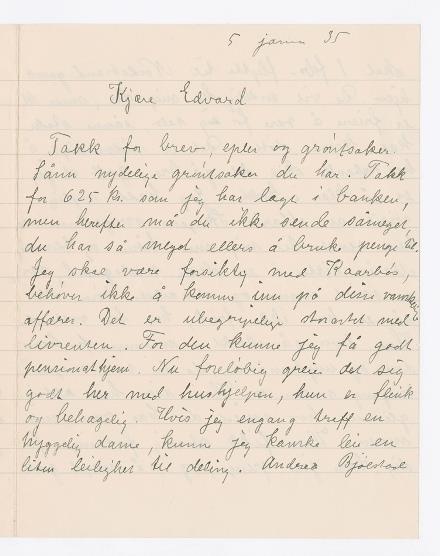 5 januar 35
Kjære Edvard
Takk for brev, epler og grøntsaker.
Sånn nydelige grøntsaker du har. Takk
for 625 kr. som jeg har lagt i banken,
men herefter må du ikke sende såmeget,
du har så meget ellers å bruke penge til.
Jeg skal være forsiktig med Kaarbös,
behøver ikke å komme inn på disse vanskelige
affærer. Det er ubegripelig storartet med
livrenten. For den kunne jeg få godt
pensionathjem. Nu foreløbig greier det sig
godt her med hushjelpen, hun er flink
og behagelig. Hvis jeg engang treff en
hyggelig dame, kunne jeg kanske leie en
liten leilighet til deling. Andrea Bjølstad